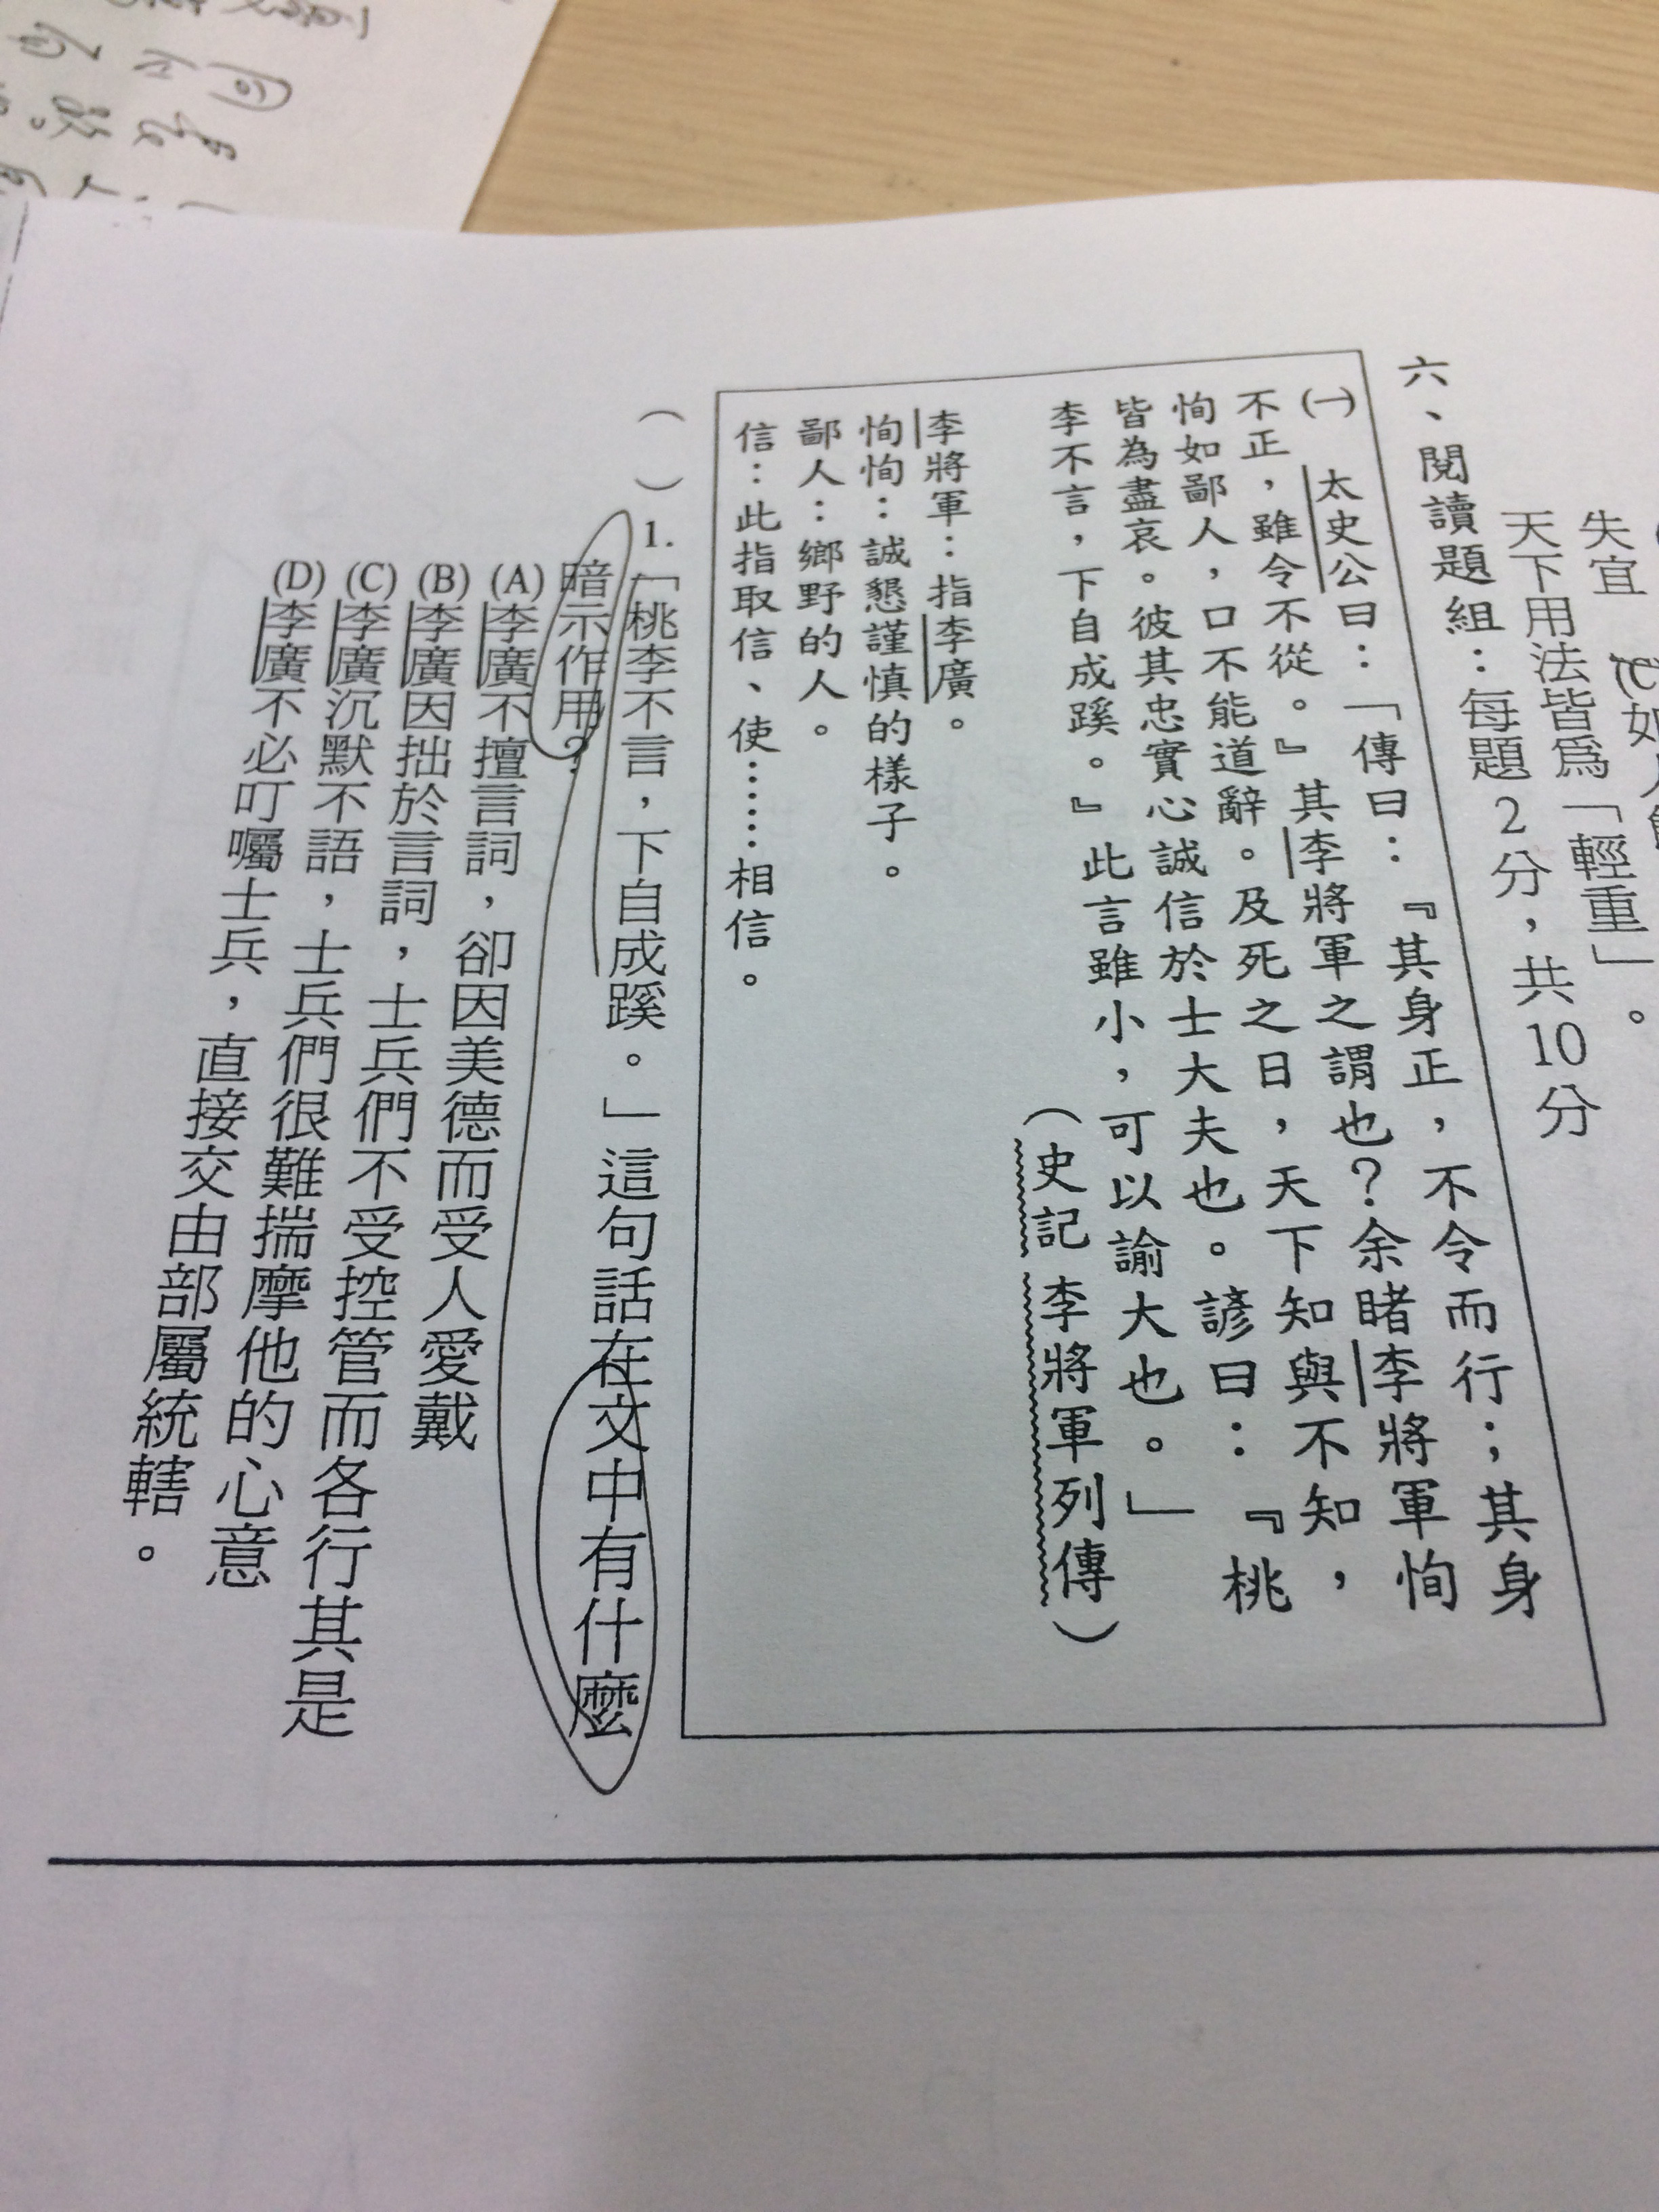 失宜
如人
天下用法皆為「輕重」。
六、閱讀題組：每題2分，共10分
(一) 太史公曰：「傳曰：『其身正，不令而行；其身
不正，雖令不從。』其李將軍之謂也？余睹李將軍恂
恂如鄙人，口不能道辭。及死之日，天下知與不知，
皆為盡哀。彼其忠實心誠信於士大夫也。諺曰：『桃
李不言，下自成蹊。』此言雖小，可以諭大也。」
（史記 李將軍列傳）
李將軍：指李廣。
恂恂：誠懇謹慎的樣子。
鄙人：鄉野的人。
信：此指取信、使……相信。
（ ）1.「桃李不言，下自成蹊。」這句話在文中有什麼
暗示作用？
(A)李廣不擅言詞，卻因美德而受人愛戴
(B)李廣因拙於言詞，士兵們不受控管而各行其是
(C)李廣沉默不語，士兵們很難揣摩他的心意
(D)李廣不必叮囑士兵，直接交由部屬統轄。